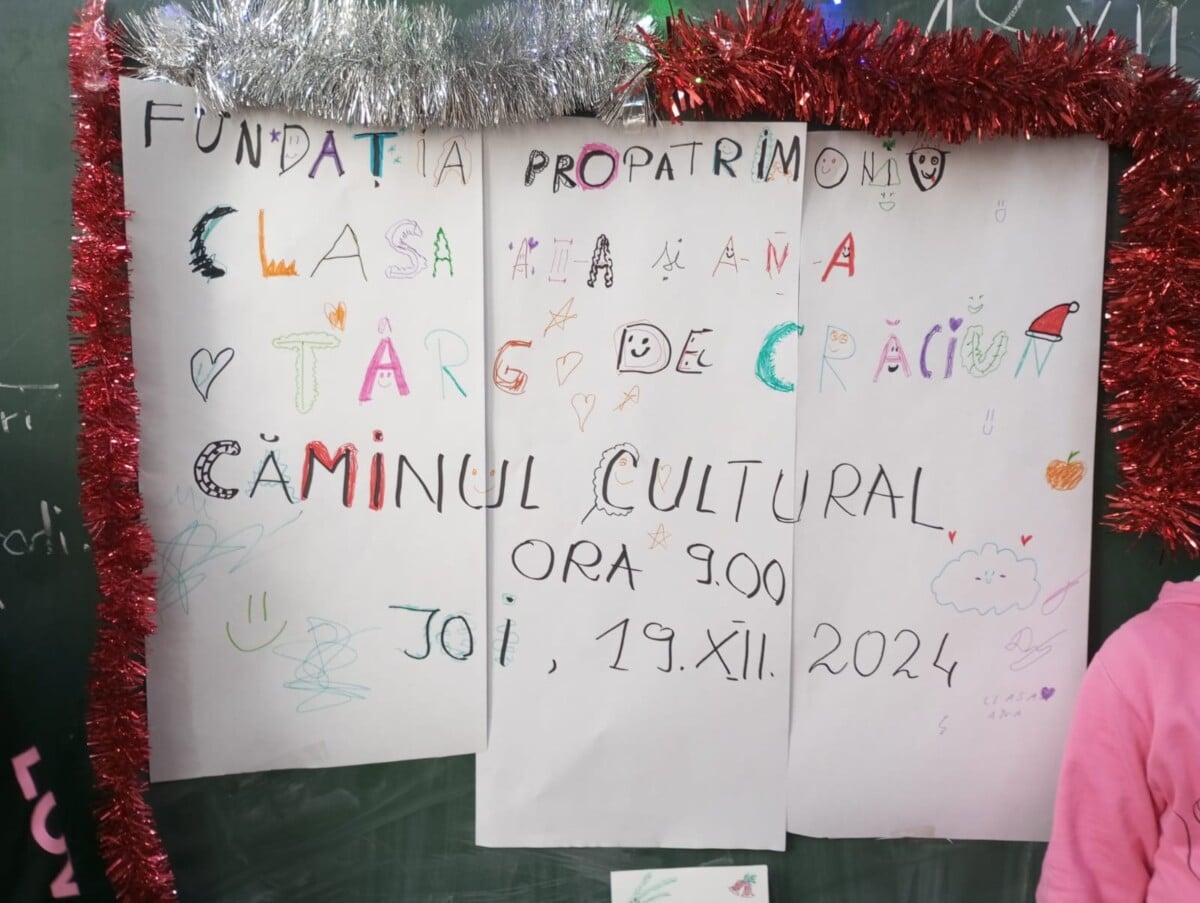 FUNDAȚIA PROPATRIMONIO
CLASA A II-A și A-V-A
TÂRG DE CRĂCIUN
CĂMINUL CULTURAL
ORA 9.00
JOI, 19.XII.2024
CLASA
LOV